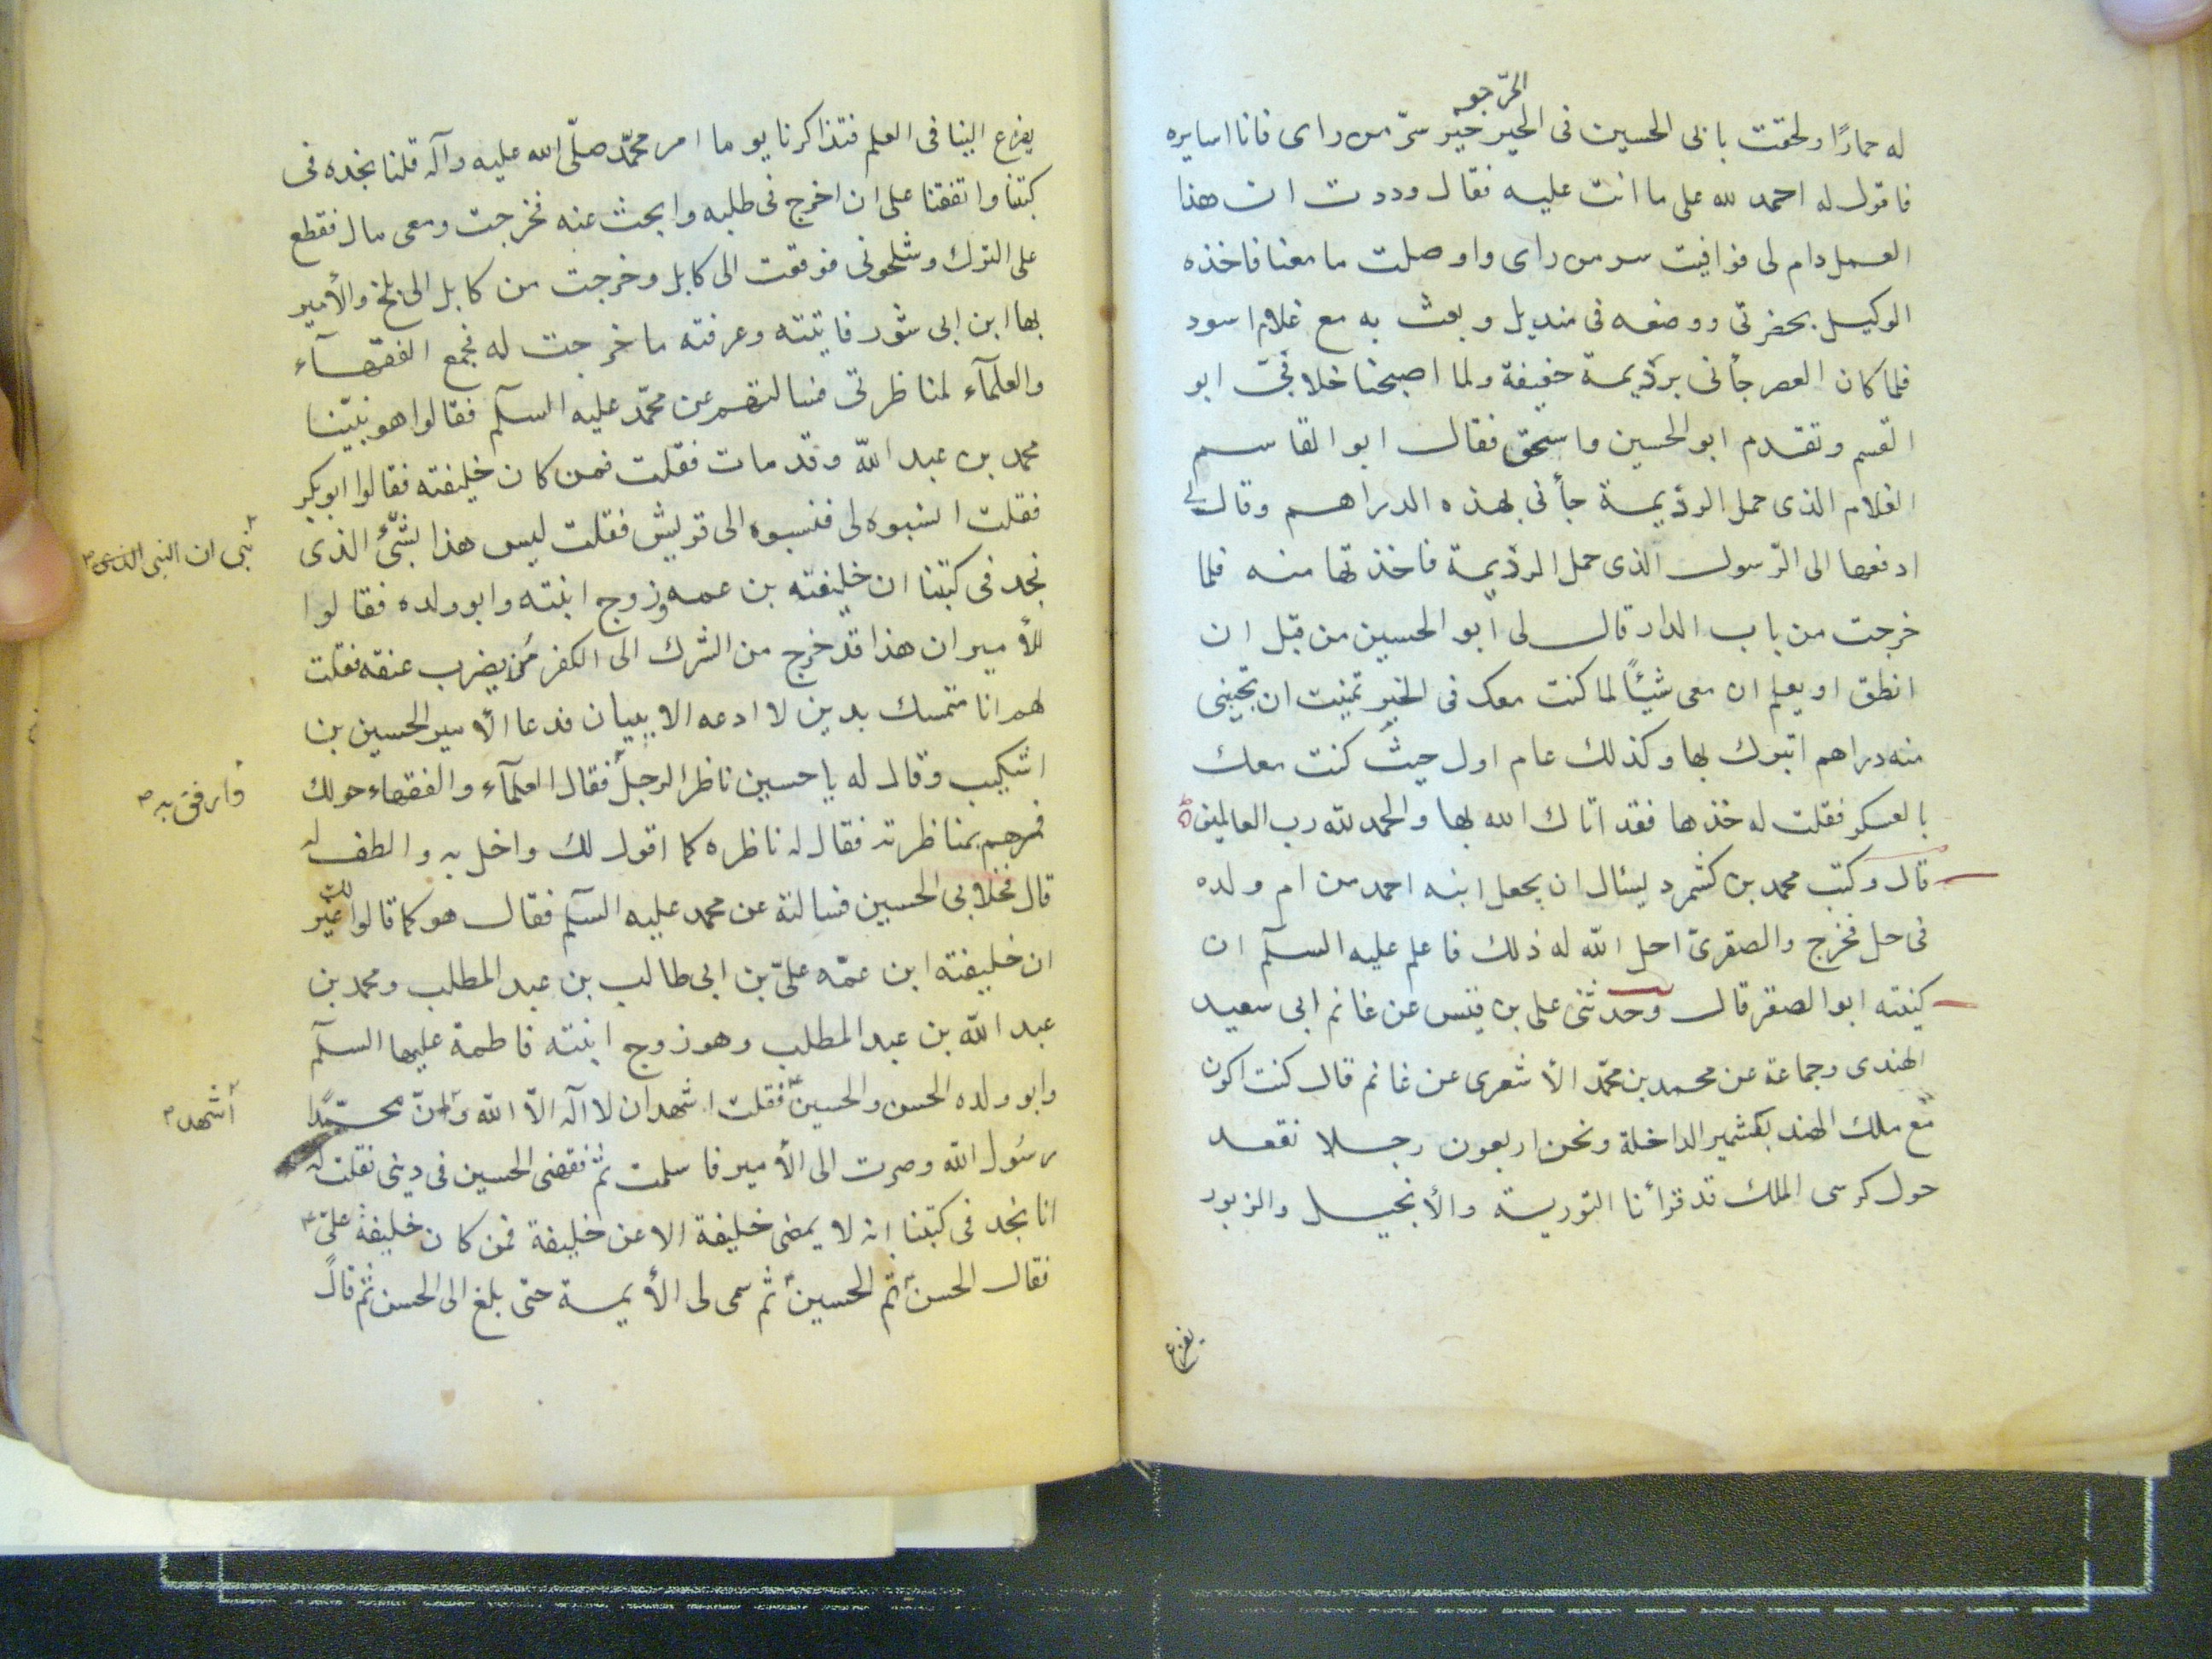 الحر جعه
له حمارًا ولحقت بابى الحسين فى الحير حير سرّ من راى فانا اسايره
فاقول له احمد لله على ما انت عليه فقال وددت ان هذا
العمل دام لى فوافيت سر من راى واوصلت ما معنا فاخذه
الوكيل بحضرتى ووضعه فى منديل وبعث به مع غلام اسود
فلما كان العصر جأنى برزيمة خفيفة ولما اصبحنا خلا فىّ ابو
القسم وتقدم ابو الحسين واسحق فقال ابو القاسم
الغلام الذى حمل الرزيمة جأنى بهذه الدراهم وقال لى
ادفعها الى الرّسول الذى حمل الرزيمة فاخذتها منه فلما
خرجت من باب الدار قال لى ابو الحسين من قبل ان
انطق او يعلم ان معى شيئًا لما كنت معك فى الحير تمنيت ان يجيئنى
منه دراهم اتبرك بها وكذلك عام اول حيث كنت معك
بالعسكر فقلت له خذها فقد اتاك الله بها والحمد لله رب العالمين
قال وكتب محمد بن كشمرد يسئال ان يجعل ابنه احمد من ام ولده
فى حل فخرج والصقرىّ احل الله له ذلك فاعلم عليه السلم ان
كنيته ابو الصقر قال وحدثنى على بن قيس عن غانم ابى سعيد
الهندى وجماعة عن محمد بن محمّد الأشعرى عن غانم قال كنت اكون
مع ملك الهند بقشمير الداخلة ونحن اربعون رجلا نقعد
حول كرسى الملك قد قرأنا التورية والأنجيل والزبور
يفزع
يفزع الينا فى العلم فتذاكرنا يوما امر محمّد صلّى الله عليه وآله قلنا نجده فى
كتبنا واتفقنا على ان اخرج فى طلبه وابحث عنه فخرجت ومعى مال فقطع
على الترك وشلحونى فوقعت الى كابل وخرجت من كابل الى بلخ والأمير
بها ابن ابى شور فاتيته وعرفته ما خرجت له فجمع الفقهآء
والعلمآء لمناظرتى فسالتهم عن محمّد عليه السلم فقالوا هو نبيّنا
محمد بن عبد الله وقد مات فقلت فمن كان خليفته فقالوا ابو بكر
فقلت انسبوه لى فنسبوه الى قريش فقلت ليس هذا بشىء الذى
نبى ان النبى الذى
نجد فى كتبنا ان خليفته بن عمه وزوج ابنته وابو ولده فقالوا
للأمير ان هذا قد خرج من الشرك الى الكفر مر يضرب عنقه فقلت
لهم انا متمسك بدين لا ادعه الا ببيان فدعا الأمير الحسين بن
اشكيب وقال له يا حسين ناظر الرجل فقال العلمآء والفقهاء حولك
فمرهم بمناظرته فقال له ناظره كما اقول لك واخل به والطف له
وارفق به
قال فخلا بى الحسين فسالته عن محمد عليه السلم فقال هو كما قالوا لك غير
ان خليفته ابن عمّه علىّ بن ابى طالب بن عبد المطلب ومحمد بن
عبد الله بن عبد المطلب وهو زوج ابنته فاطمة عليها السلم
وابو ولده الحسن والحسين فقلت اشهد ان لا اله الّا الله وانّ محمّدًا
أشهد
رسُول الله وصرت الى الأمير فاسلمت ثمّ فقضى الحسين فى دينى فقلت له
انا نجد فى كتبنا انه لا يمضى خليفة الا عن خليفة فمن كان خليفة علىّ
فقال الحسن ثم الحسين ثم سمى لى الأيمة حتى بلغ الى الحسن ثم قال